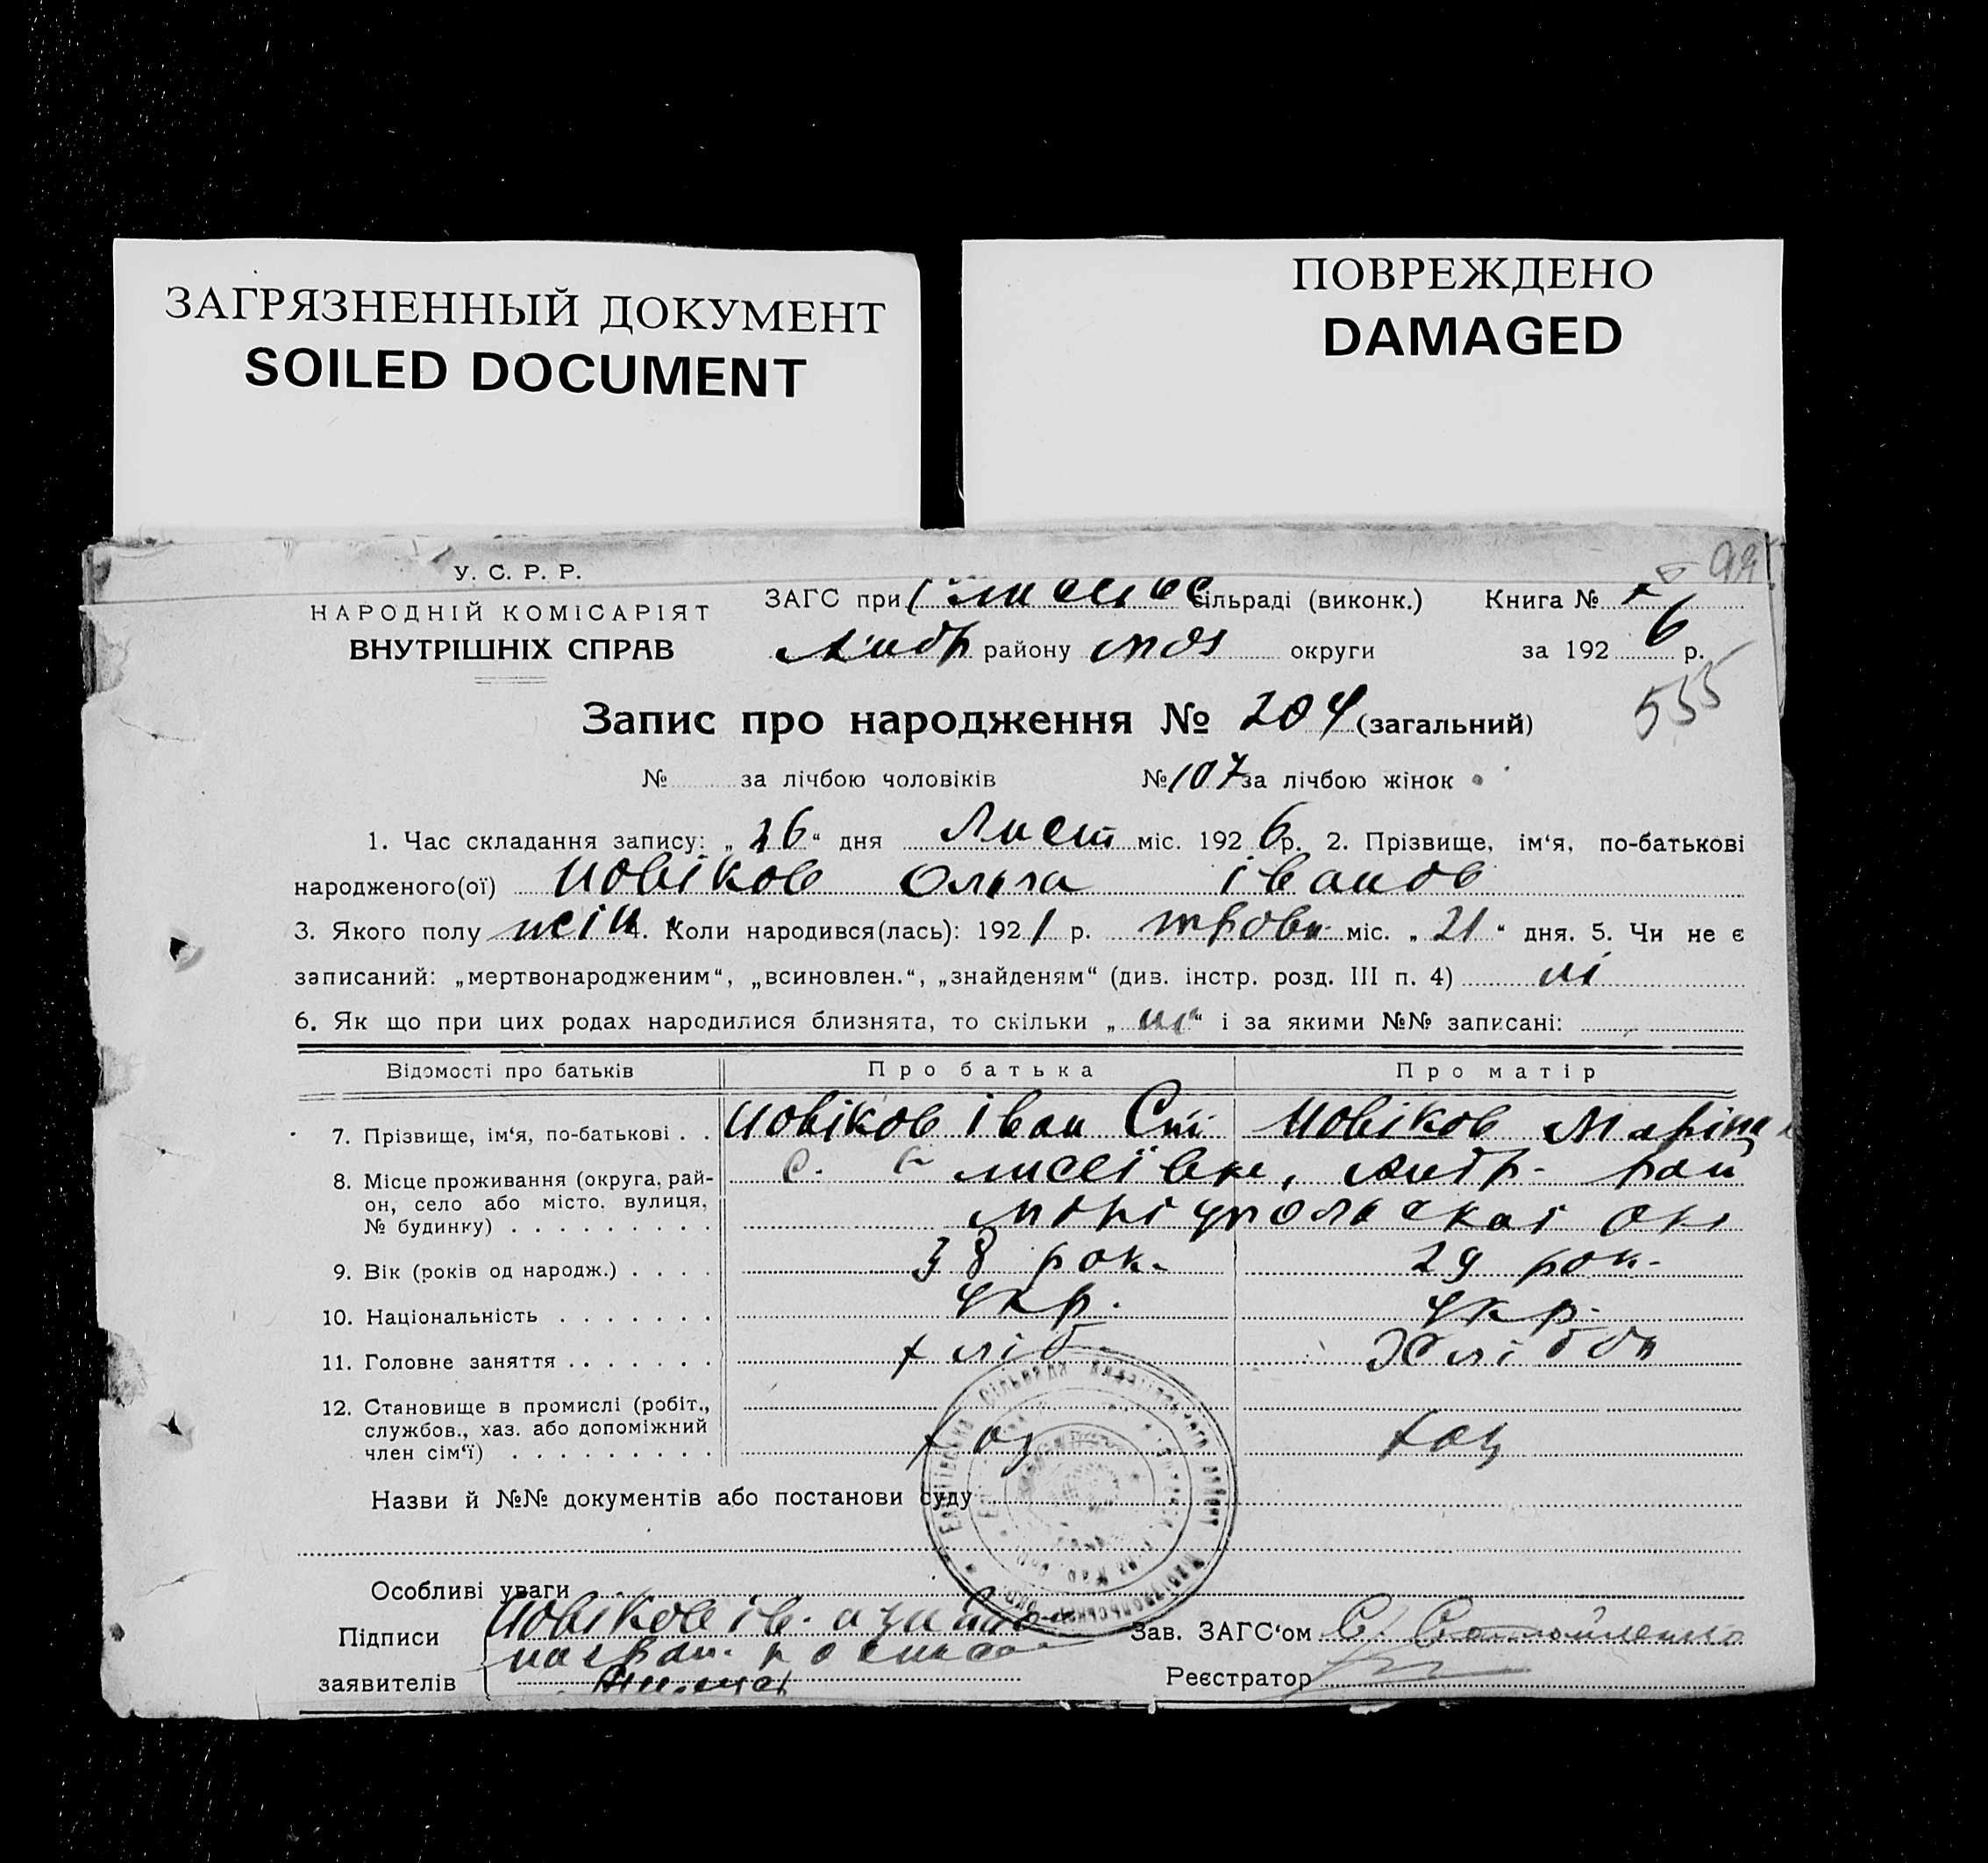 ЗАГРЯЗНЕННЫЙ ДОКУМЕНТ
SOILED DOCUMENT
ПОВРЕЖДЕНО
DAMAGED
99
У. С. Р. Р.
НАРОДНІЙ КОМІСАРІЯТ
ВНУТРІШНІХ СПРАВ
ЗАГС при сільраді (виконк.) Книга №
Андр району округи за 192 6 р.
555
Запис про народження № 204 (загальний)
№ за лічбою чоловіків № 107 за лічбою жінок
1. Час складання запису: „26“ дня Лист міс. 192 6 р. 2. Прізвище, ім‘я, по-батькові
народженого(ої) Новіков Ольга Іванов
3. Якого полу жін 4. Коли народився(лась): 192 1 р. травн. міс. „21“ дня. 5. Чи не є
записаний: „мертвонародженим“, „всиновлен.“, „знайденям“ (див. інстр. розд. III п. 4) ні
6. Як що при цих родах народилися близнята, то скільки „ні“ і за якими №№ записані:
Відомості про батьків Про батька Про матір
7. Прізвище, ім‘я, по-батькові . . Новіков Іван Новіков
8. Місце проживання (округа, рай-
он, село або місто, вулиця,
№ будинку) . . . . . . . . .
с. Андр. рай
Маріупольської окр
9. Вік (років од народж.) . . . . 38 рок. 29 рок.
10. Національність . . . . . . . Укр. Укр.
11. Головне заняття . . . . . . . хліб Хлібор
12. Становище в промислі (робіт.,
службов., хаз. або допоміжний
член сім‘ї) . . . . . . . . .
хаз хаз
Назви й №№ документів або постанови суду
Особливі уваги
Підписи
заявителів
Новіков Ів.
Зав. ЗАГС‘ом С.
Реєстратор